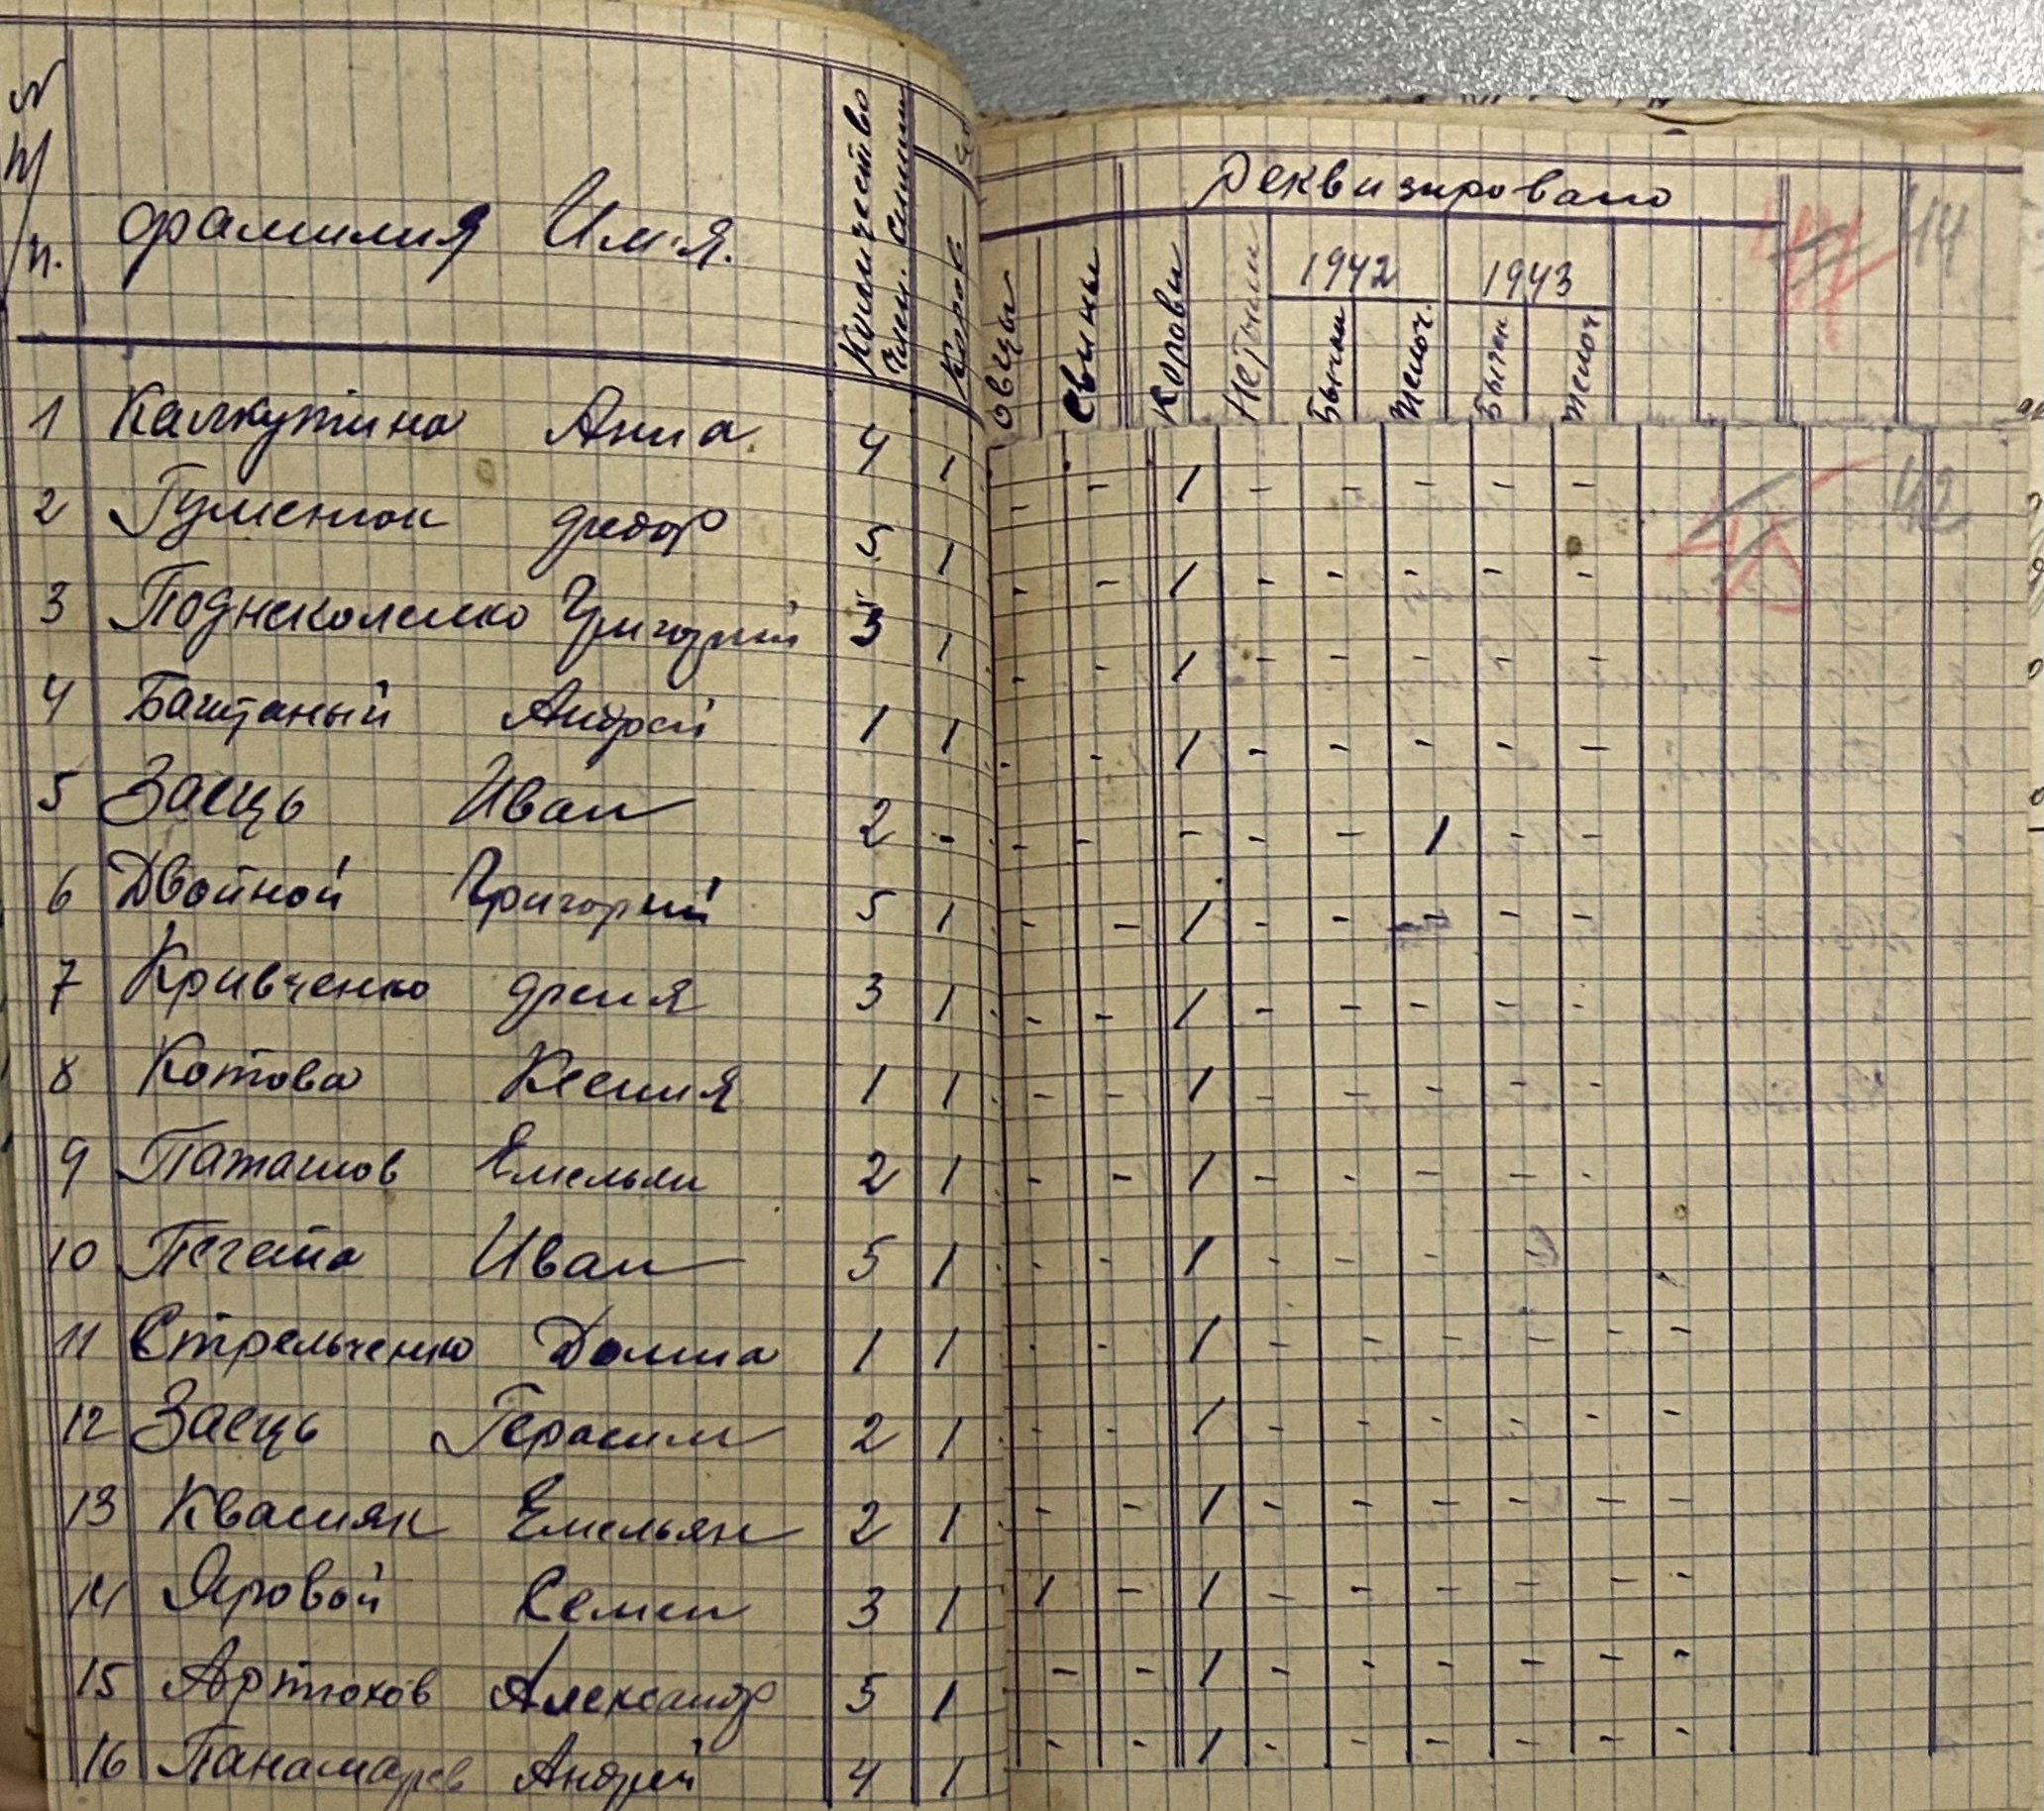 N п/п. Фамилия Имя. Количество Член. Семьи Коров
Реквизировано
44
Овцы Свиньи Коровы Нетели 1942 1943
Бычки Телоч. Бычк Телоч
42
1 Калкутина Анна 4 1 - - 1 - - - - -
2 Гуменюк Федор 5 1 - - 1 - - - - -
3 Поднеколенко Григорий 3 1 - - 1 - - - - -
4 Баштаный Андрей 1 1 - - 1 - - - - -
5 Заець Иван 2 - - - - - - 1 - -
6 Двойной Григорий 5 1 - - 1 - - - - -
7 Кривченко Феня 3 1 - - 1 - - - - -
8 Котова Ксения 1 1 - - 1 - - - - -
9 Паташов Емельян 2 1 - - 1 - - - - -
10 Иван 5 1 - - 1 - - - -
11 Стрельченко Домна 1 1 - - 1 - - - - - -
12 Заець Герасим 2 1 - - 1 - - - - - -
13 Квасняк Емельян 2 1 - - 1 - - - - - -
14 Яровой Семен 3 1 1 - 1 - - - - - -
15 Артюхов Александр 5 1 - - 1 - - - - - -
16 Панамарев Андрей 4 1 - - 1 - - - - - -